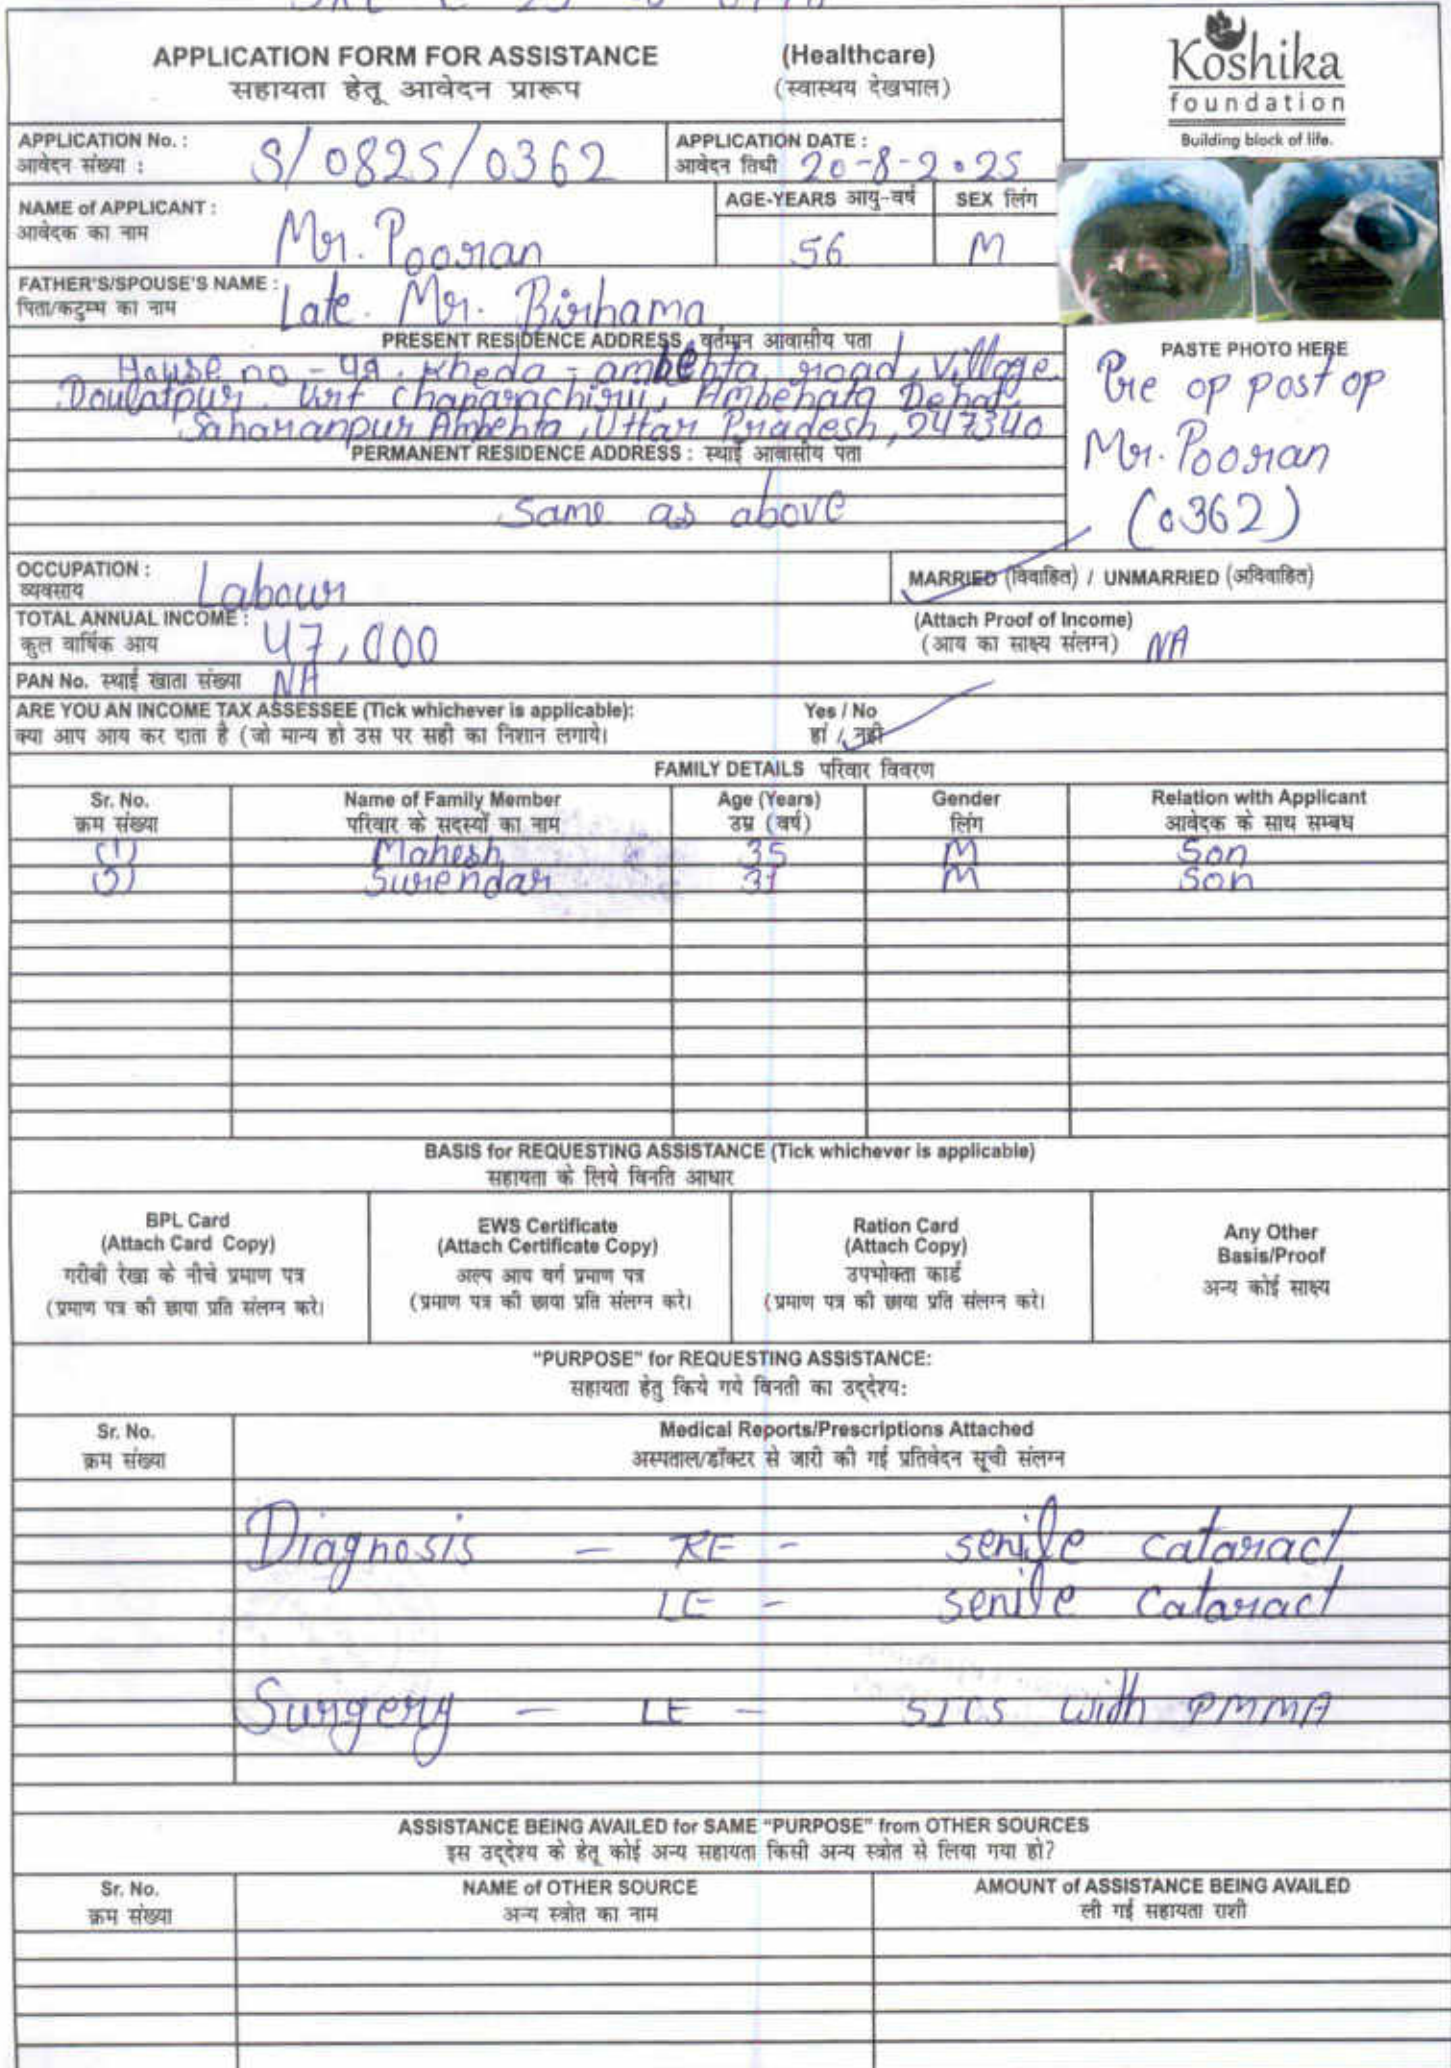 APPLICATION FORM FOR ASSISTANCE (Healthcare)
सहायता हेतू आवेदन प्रारूप (स्वास्थय देखभाल)
Koshika
foundation
Building block of life.
APPLICATION No. : S/0825/0362 APPLICATION DATE : 20-8-2025
आवेदन संख्या : आवेदन तिथी
NAME of APPLICANT : Mr. Pooran AGE-YEARS आयु-वर्ष 56 SEX लिंग M
आवेदक का नाम
FATHER'S/SPOUSE'S NAME : Late. Mr. Birhama
पिता/कटुम्भ का नाम
PRESENT RESIDENCE ADDRESS वर्तमान आवासीय पता
House no - 49. Kheda - ambehta road, village
Doulatpur. Urf Chaparachiru, Ambehata Dehat,
Saharanpur Ambehta, Uttar Pradesh, 247340
PERMANENT RESIDENCE ADDRESS : स्थाई आवासीय पता
Same as above
PASTE PHOTO HERE
Pre op post op
Mr. Pooran
(0362)
OCCUPATION : Labour MARRIED (विवाहित) / UNMARRIED (अविवाहित)
व्यवसाय
TOTAL ANNUAL INCOME : 47,000 (Attach Proof of Income)
कुल वार्षिक आय (आय का साक्ष्य संलग्न) NA
PAN No. स्थाई खाता संख्या NA
ARE YOU AN INCOME TAX ASSESSEE (Tick whichever is applicable): Yes / No
क्या आप आय कर दाता है (जो मान्य हो उस पर सही का निशान लगाये। हां / नही
FAMILY DETAILS परिवार विवरण
Sr. No. Name of Family Member Age (Years) Gender Relation with Applicant
क्रम संख्या परिवार के सदस्यों का नाम उम्र (वर्ष) लिंग आवेदक के साथ सम्बध
(1) Mahesh 35 M Son
(2) Surendar 37 M Son
BASIS for REQUESTING ASSISTANCE (Tick whichever is applicable)
सहायता के लिये विनति आधार
BPL Card
(Attach Card Copy)
गरीबी रेखा के नीचे प्रमाण पत्र
(प्रमाण पत्र की छाया प्रति संलग्न करे।
EWS Certificate
(Attach Certificate Copy)
अल्प आय वर्ग प्रमाण पत्र
(प्रमाण पत्र की छाया प्रति संलग्न करे।
Ration Card
(Attach Copy)
उपभोक्ता कार्ड
(प्रमाण पत्र की छाया प्रति संलग्न करे।
Any Other
Basis/Proof
अन्य कोई साक्ष्य
"PURPOSE" for REQUESTING ASSISTANCE:
सहायता हेतु किये गये विनती का उद्देश्य:
Sr. No. Medical Reports/Prescriptions Attached
क्रम संख्या अस्पताल/डॉक्टर से जारी की गई प्रतिवेदन सूची संलग्न
Diagnosis - RE - senile cataract
LE - senile cataract
Surgery - LE - SICS with PMMA
ASSISTANCE BEING AVAILED for SAME "PURPOSE" from OTHER SOURCES
इस उद्देश्य के हेतू कोई अन्य सहायता किसी अन्य स्त्रोत से लिया गया हो?
Sr. No. NAME of OTHER SOURCE AMOUNT of ASSISTANCE BEING AVAILED
क्रम संख्या अन्य स्त्रोत का नाम ली गई सहायता राशी